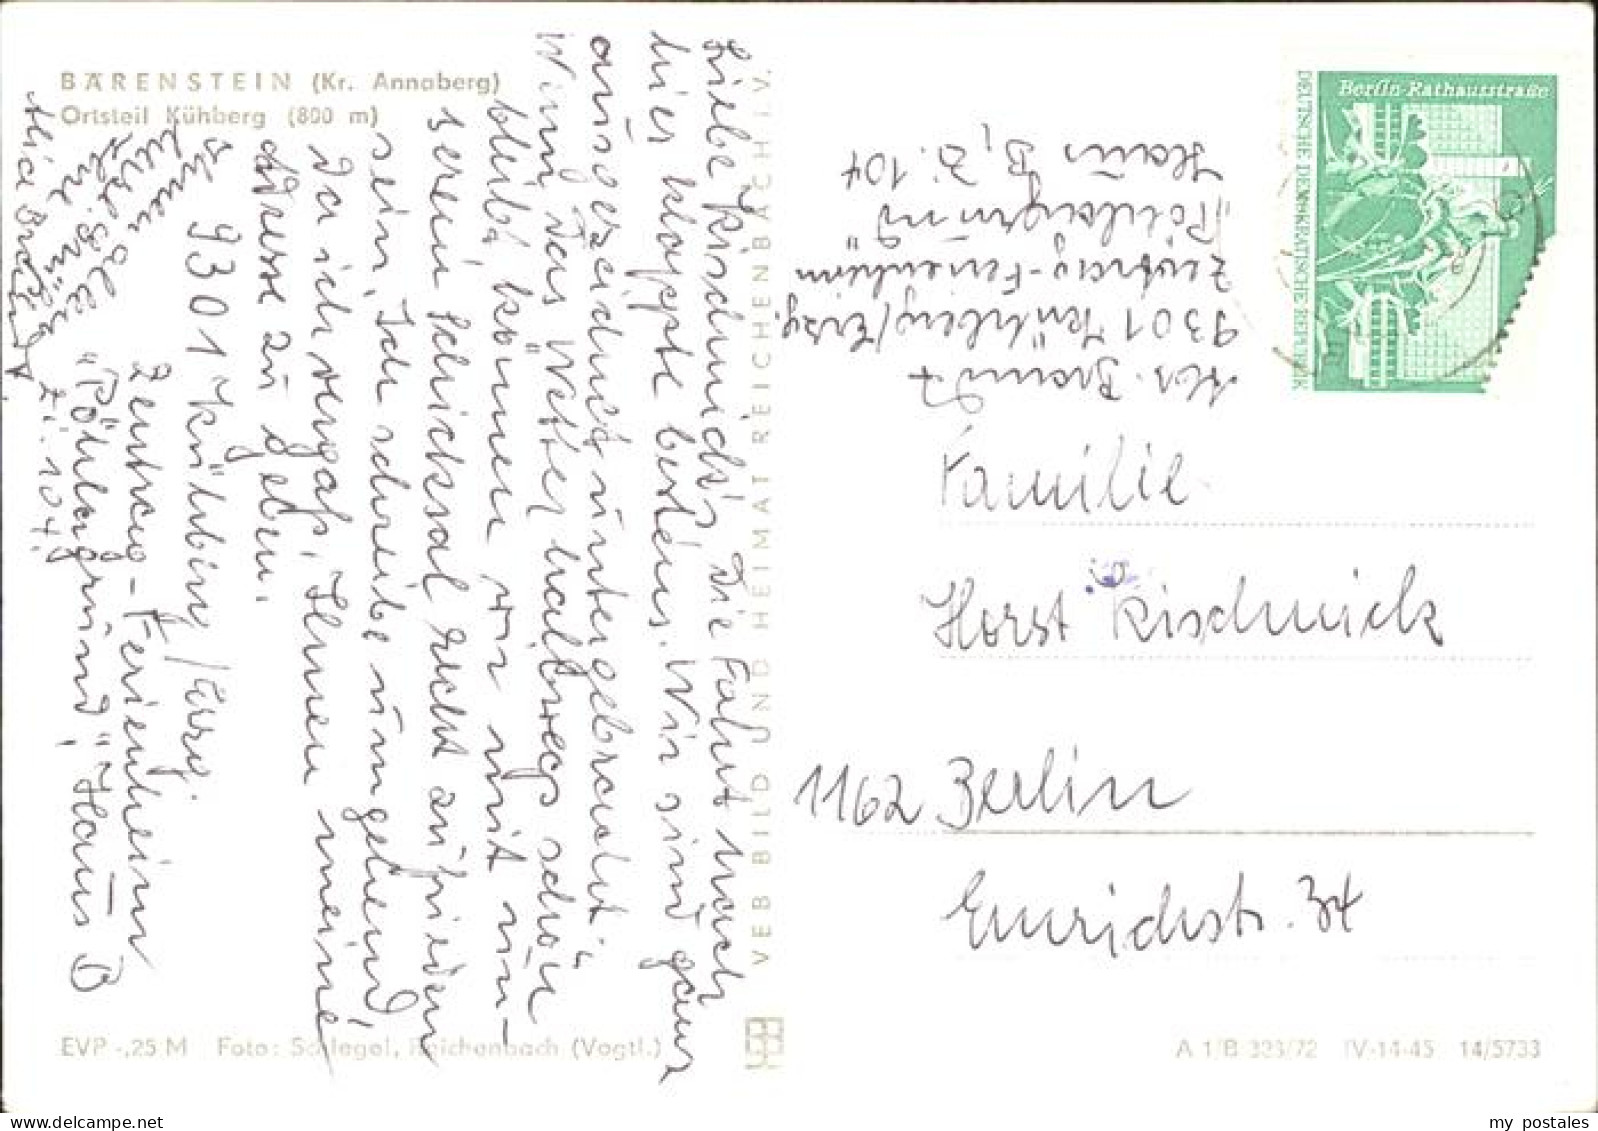 BÄRENSTEIN (Kr. Annaberg)
Ortsteil Kühberg (800 m)
Liebe Kischnick's! Die Fahrt nach
hier klappte bestens. Wir sind ganz
ausgezeichnet untergebracht.
Wenn das Wetter halbwegs schön
bleibt, können wir mit un-
serem Schicksal recht zufrieden
sein. Ich schreibe umgehend,
da ich vergaß, Ihnen meine
Adresse zu geben.
9301 Kühberg/Erzg.
Zentrag-Ferienheim
"Pöhlagrund", Haus B
Zi. 104.
Ihnen alles
Ihre
VEB BILD UND HEIMAT REICHENBACH I. V.
EVP -,25 M Foto: Schlegel, Reichenbach (Vogtl.)
Abs. Brandt
9301 Kühberg/Erzg.
Zentrag-Ferienheim
"Pöhlagrund"
Haus B, Z. 104
Berlin-Rathausstraße
DEUTSCHE DEMOKRATISCHE REPUBLIK
Familie
Horst Kischnick
1162 Berlin
Emrichstr. 34
A 1/B 323/72 IV-14-45 14/5733
my postales